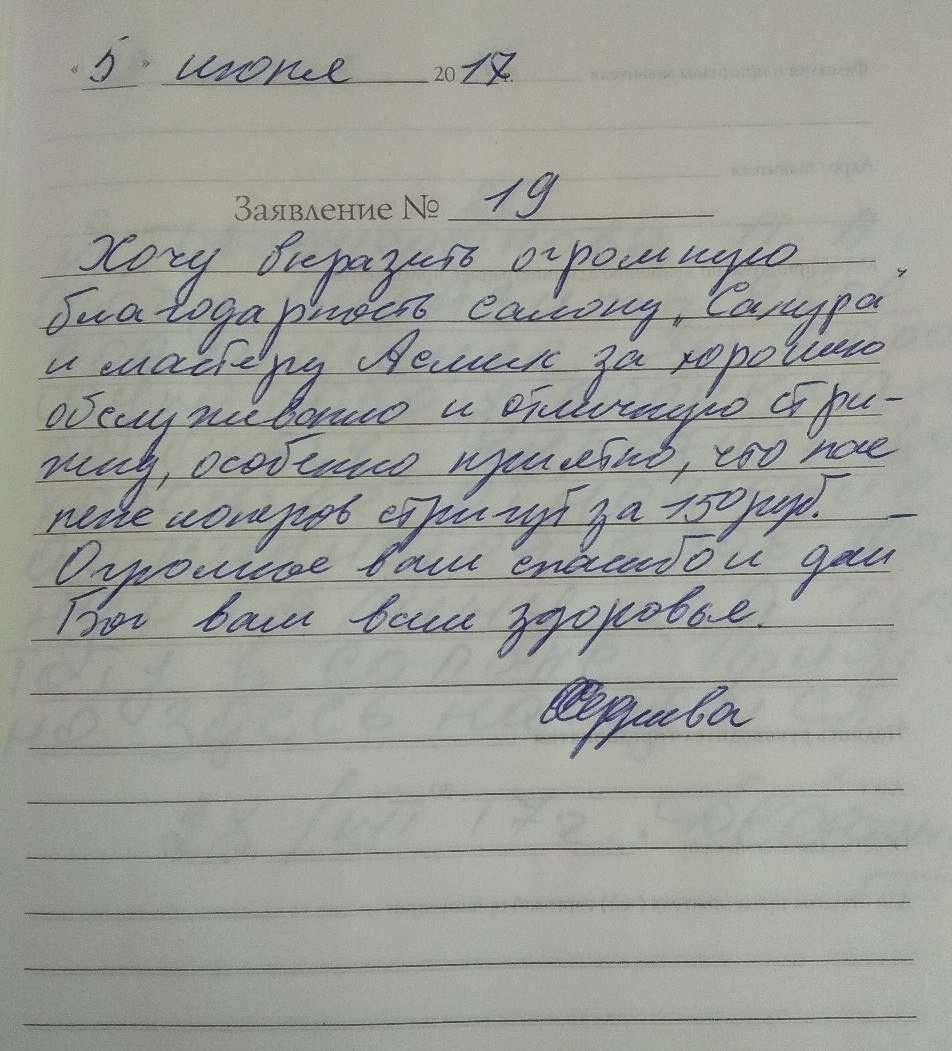 « 5 » июня 2017г.
Заявление № 19
Хочу выразить огромную
благодарность салону „Сакура“
и мастеру Асмик за хорошею
обслуживанию и отличную стри-
жку, особенно приятно, что нас
пенсионеров стригут за 150 руб. –
Огромное вам спасибо и дай
Бог вам всем здоровья.